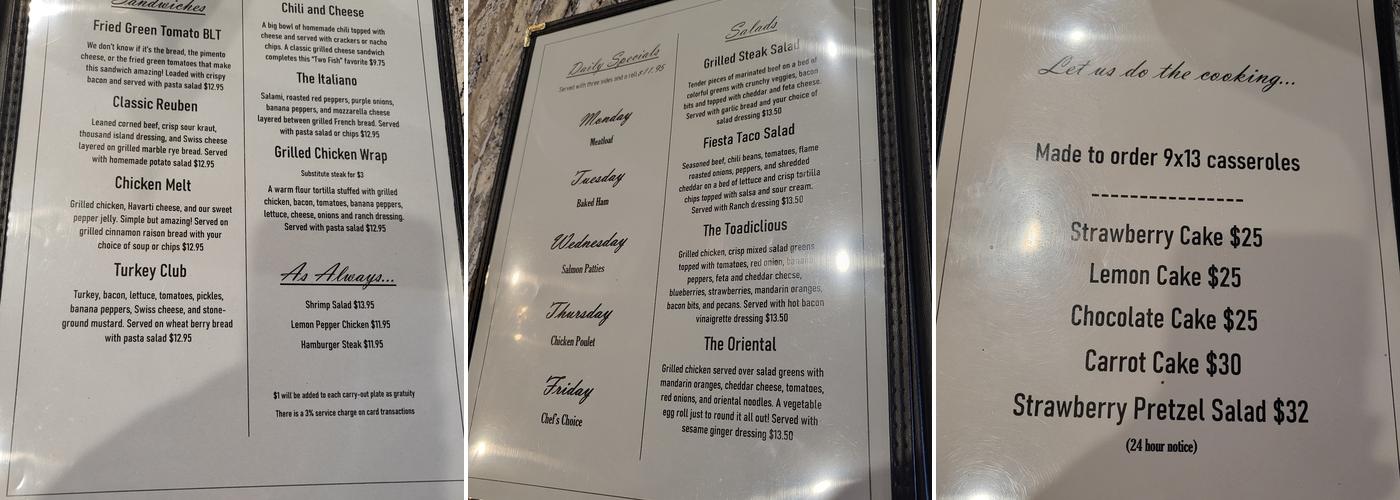 Sandwiches
Fried Green Tomato BLT
We don't know if it's the bread, the pimento
cheese, or the fried green tomatoes that make
this sandwich amazing! Loaded with crispy
bacon and served with pasta salad $12.95
Classic Reuben
Leaned corned beef, crisp sour kraut,
thousand island dressing, and Swiss cheese
layered on grilled marble rye bread. Served
with homemade potato salad $12.95
Chicken Melt
Grilled chicken, Havarti cheese, and our sweet
pepper jelly. Simple but amazing! Served on
grilled cinnamon raison bread with your
choice of soup or chips $12.95
Turkey Club
Turkey, bacon, lettuce, tomatoes, pickles,
banana peppers, Swiss cheese, and stone-
ground mustard. Served on wheat berry bread
with pasta salad $12.95
Chili and Cheese
A big bowl of homemade chili topped with
cheese and served with crackers or nacho
chips. A classic grilled cheese sandwich
completes this "Two Fish" favorite $9.75
The Italiano
Salami, roasted red peppers, purple onions,
banana peppers, and mozzarella cheese
layered between grilled French bread. Served
with pasta salad or chips $12.95
Grilled Chicken Wrap
Substitute steak for $3
A warm flour tortilla stuffed with grilled
chicken, bacon, tomatoes, banana peppers,
lettuce, cheese, onions and ranch dressing.
Served with pasta salad $12.95
As Always...
Shrimp Salad $13.95
Lemon Pepper Chicken $11.95
Hamburger Steak $11.95
$1 will be added to each carry-out plate as gratuity
There is a 3% service charge on card transactions
Daily Specials
Served with three sides and a roll $11.95
Monday
Meatloaf
Tuesday
Baked Ham
Wednesday
Salmon Patties
Thursday
Chicken Poulet
Friday
Chef's Choice
Salads
Grilled Steak Salad
Tender pieces of marinated beef on a bed of
colorful greens with crunchy veggies, bacon
bits and topped with cheddar and feta cheese.
Served with garlic bread and your choice of
salad dressing $13.50
Fiesta Taco Salad
Seasoned beef, chili beans, tomatoes, flame
roasted onions, peppers, and shredded
cheddar on a bed of lettuce and crisp tortilla
chips topped with salsa and sour cream.
Served with Ranch dressing $13.50
The Toadiclious
Grilled chicken, crisp mixed salad greens
topped with tomatoes, red onion, banana
peppers, feta and cheddar cheese,
blueberries, strawberries, mandarin oranges,
bacon bits, and pecans. Served with hot bacon
vinaigrette dressing $13.50
The Oriental
Grilled chicken served over salad greens with
mandarin oranges, cheddar cheese, tomatoes,
red onions, and oriental noodles. A vegetable
egg roll just to round it all out! Served with
sesame ginger dressing $13.50
Let us do the cooking...
Made to order 9x13 casseroles
----------------
Strawberry Cake $25
Lemon Cake $25
Chocolate Cake $25
Carrot Cake $30
Strawberry Pretzel Salad $32
(24 hour notice)